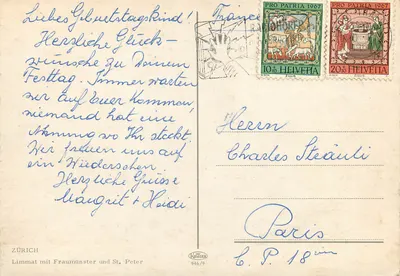 Liebes Geburtstagskind!
Herzliche Glück-
wünsche zu Deinem
Festtag. Immer warten
wir auf Euer Kommen,
niemand hat eine
Ahnung wo Ihr steckt.
Wir freuen uns auf
ein Wiedersehen
Herzliche Grüsse
Maugrit + Heidi
ZÜRICH
Limmat mit Fraumünster und St. Peter
France
PRO PATRIA 1967
10+10 HELVETIA
PRO PATRIA 1967
20+10 HELVETIA
Herrn
Charles Sträuli
Paris
C. P. 18ième